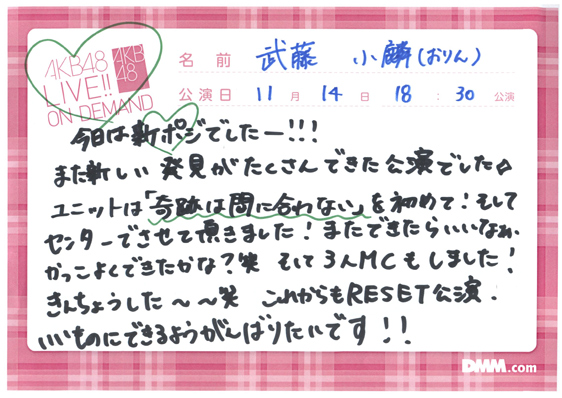 AKB48
LIVE!!
ON DEMAND
AKB
48
名前 武藤 小麟(おりん)
公演日 11月14日 18:30公演
今日は新ポジでしたー!!!
また新しい発見がたくさんできた公演でした☆
ユニットは「奇跡は間に合わない」を初めて!そして
センターでさせて頂きました!またできたらいいなぁ、
かっこよくできたかな?笑 そして3人MCもしました!
きんちょうした〜〜笑 これからもRESET公演、
いいものにできるようがんばりたいです!!
DMM.com